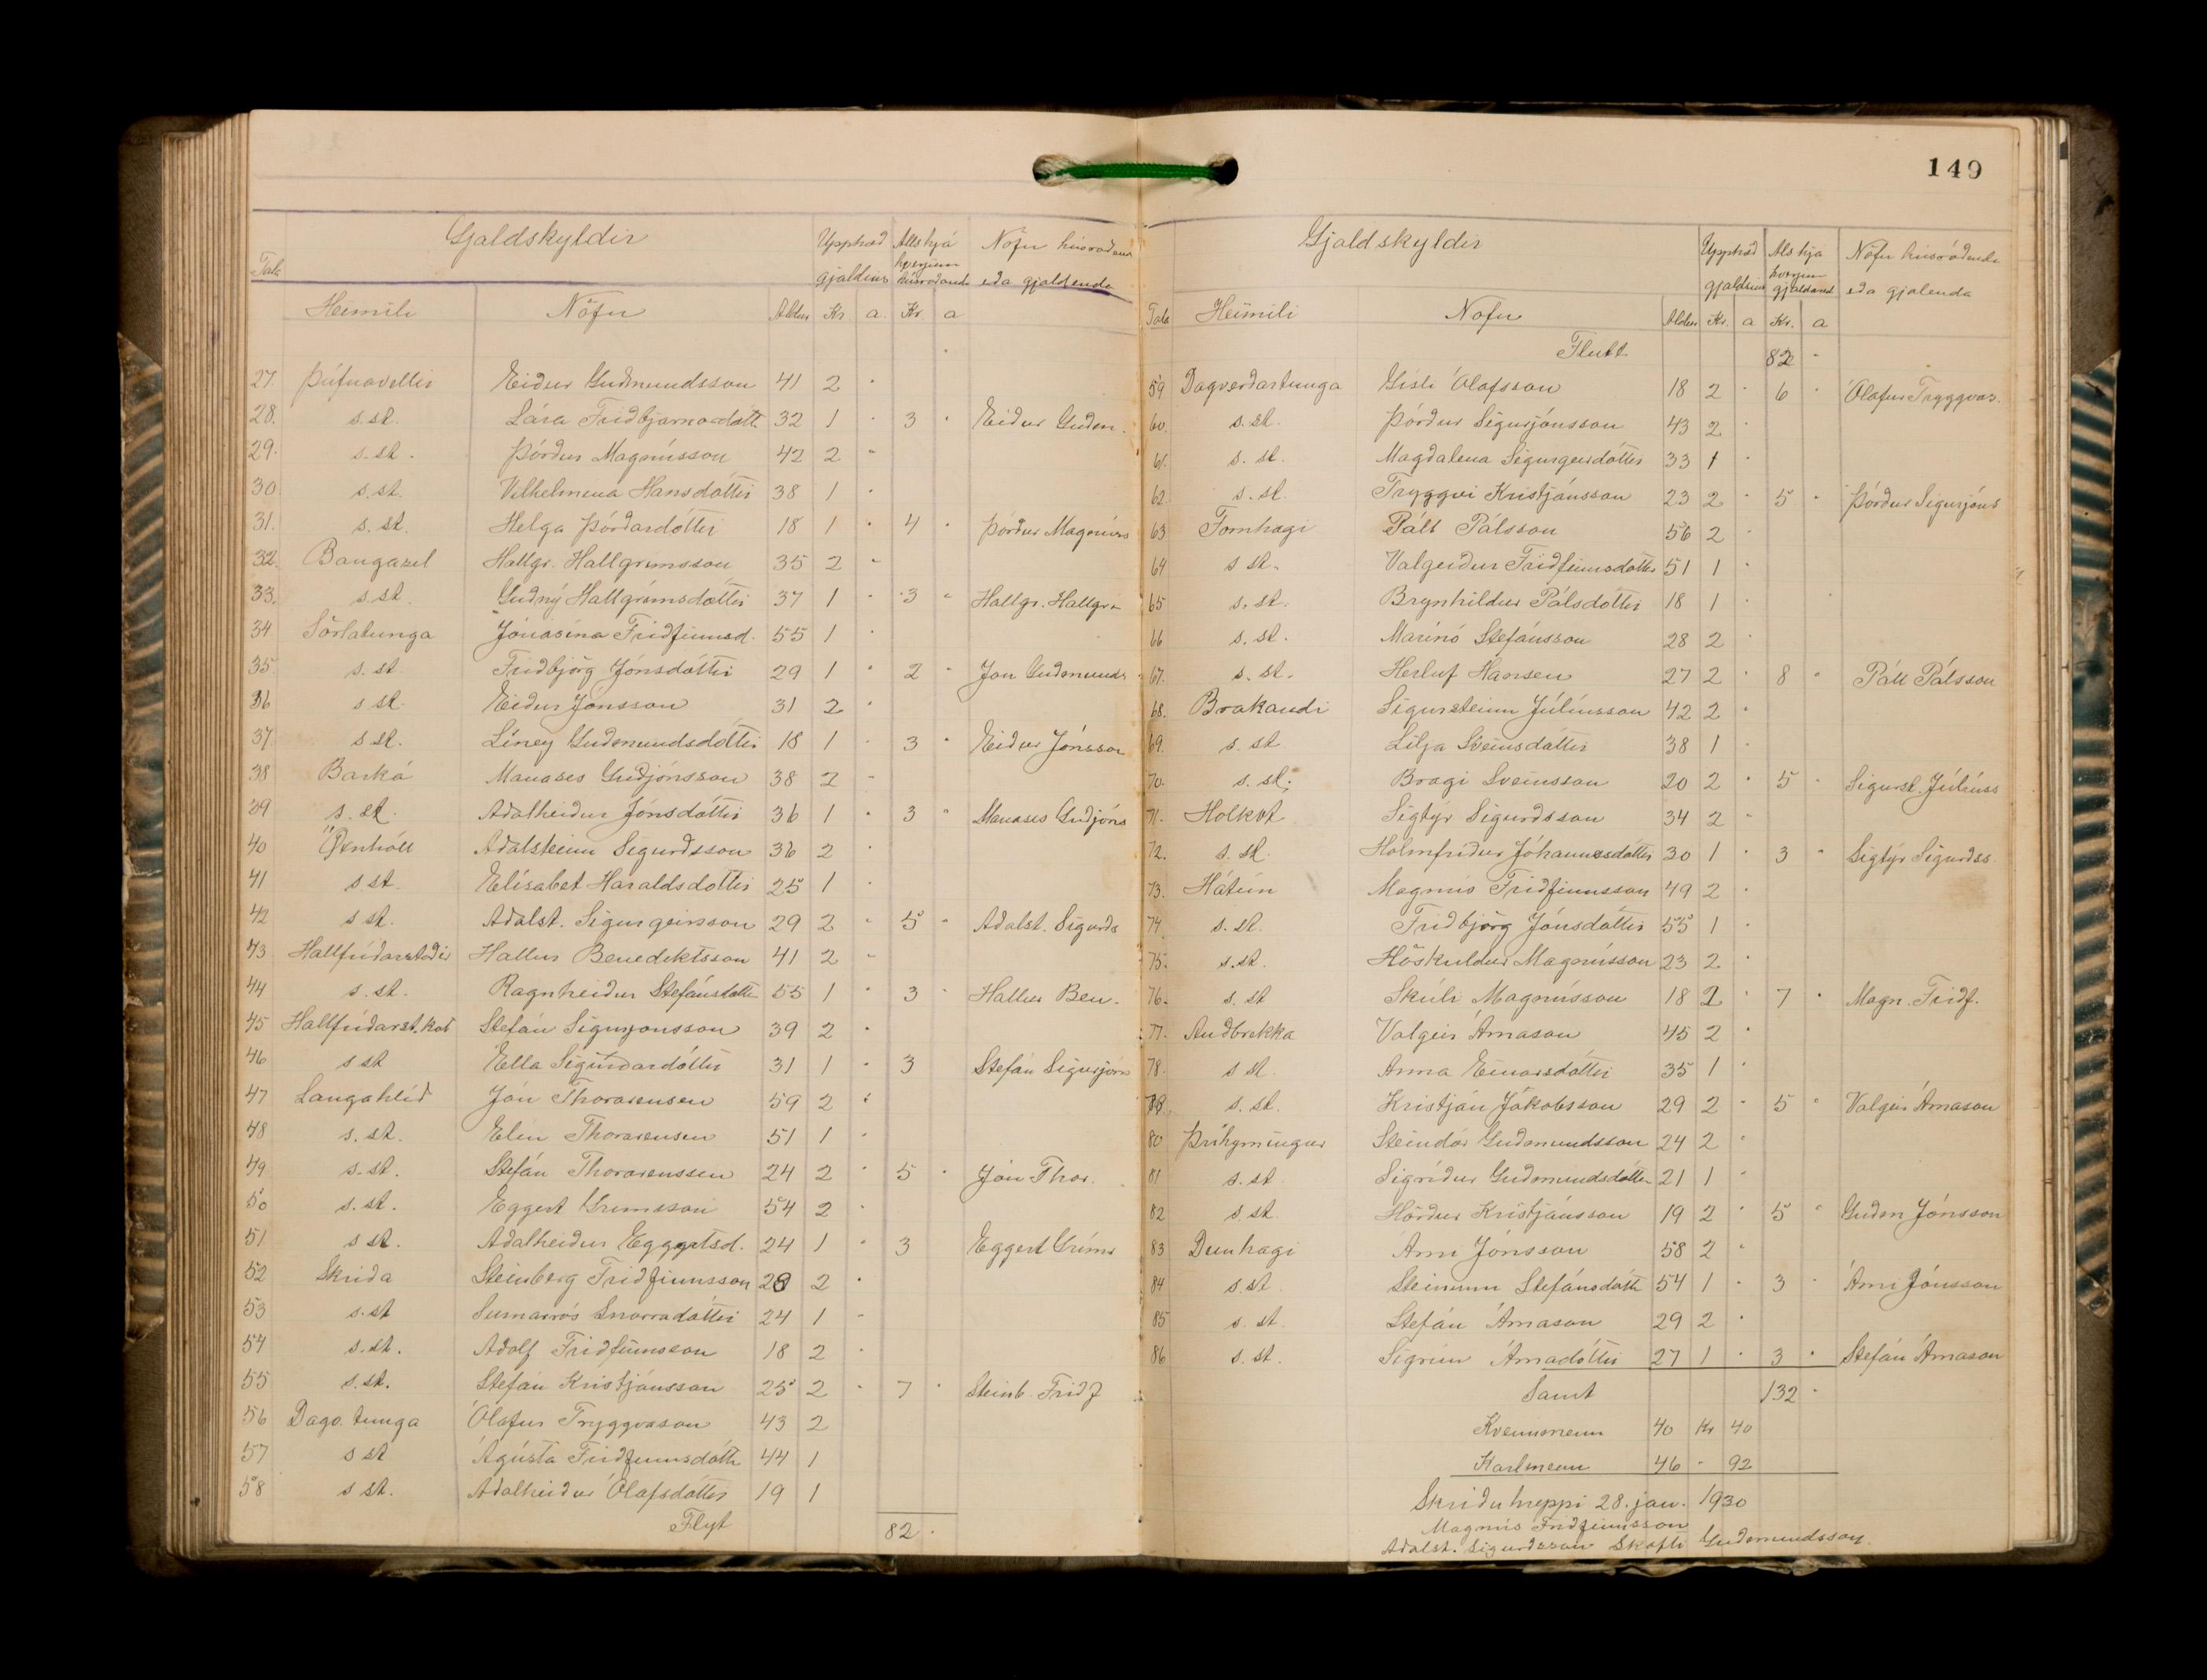 149
Gjaldskyldir Upphæð Alls hjá Nöfn húsráðend
Tala gjaldsins hverjum húsráðanda eða gjaldenda
Heimili Nöfn Aldur Kr. a. Kr a
27 Þúfnavellir Eiður Guðmundsson 41 2 "
28. s.st. Lára Friðbjarnardótt. 32 1 " 3 " Eiður Guðm.
29. s.st. Þórður Magnússon 42 2 "
30 s.st. Vilhelmína Hansdóttir 38 1 "
31. s.st. Helga Þórðardóttir 18 1 " 4 " Þórður Magnúss
32. Baugasel Hallgr. Hallgrímsson 35 2 "
33. s.st. Guðný Hallgrímsdóttir 37 1 " 3 " Hallgr. Hallgr.
34 Sörlatunga Jónasína Friðfinnsd. 55 1 "
35. s.st. Friðbjörg Jónsdóttir 29 1 " 2 " Jón Guðmunds
36 s st. Eiður Jónsson 31 2 "
37 s st. Líney Guðmundsdóttir 18 1 " 3 " Eiður Jónsson
38 Barká Manases Guðjónsson 38 2 "
39 s.st. Aðalheiður Jónsdóttir 36 1 " 3 " Manases Guðjóns
40 Öxnhóll Aðalsteinn Sigurðsson 36 2 "
41 s st. Elísabet Haraldsdóttir 25 1 "
42 s st. Aðalst. Sigurgeirsson 29 2 " 5 " Aðalst. Sigurðs
43 Hallfríðarstaðir Hallur Benediktsson 41 2 "
44 s.st. Ragnheiður Stefánsdótti 55 1 " 3 " Hallur Ben.
45 Hallfríðarst.kot Stefán Sigurjónsson 39 2 "
46 s st Ella Sigurðardóttir 31 1 " 3 Stefán Sigurjóns
47 Langahlíð Jón Thorarensen 59 2 "
48 s.st. Elín Thorarensen 51 1 "
49 s.st. Stefán Thorarenssen 24 2 " 5 " Jón Thor.
50 s.st. Eggert Grímsson 54 2 "
51 s st. Aðalheiður Eggertsd. 24 1 " 3 Eggert Gríms
52 Skriða Steinberg Friðfinnsson 28 2 "
53 s.st Sumarrós Snorradóttir 24 1 "
54 s.st. Adolf Friðfinnsson 18 2 "
55 s.st. Stefán Kristjánsson 25 2 " 7 " Steinb. Friðf
56 Dagv.tunga Ólafur Tryggvason 43 2
57 s st Ágústa Friðfinnsdótti 44 1
58 s st. Aðalheiður Ólafsdóttir 19 1
Flyt 82 "
Gjaldskyldir Upphæð Als hjá Nöfn húsráðenda
gjaldsins hverjum gjaldand eða gjalenda
Tala Heimili Nöfn Aldur Kr. a Kr. a
Flutt 82 "
59 Dagverðartunga Gísli Ólafsson 18 2 " 6 " Ólafur Tryggvas.
60. s.st. Þórður Sigurjónsson 43 2 "
61. s.st. Magdalena Sigurgeirsdóttir 33 1 "
62. s.st. Tryggvi Kristjánsson 23 2 " 5 " Þórður Sigurjóns
63 Fornhagi Páll Pálsson 56 2 "
64 s st. Valgerður Friðfinnsdóttir 51 1 "
65 s.st. Brynhildur Pálsdóttir 18 1 "
66 s.st. Marínó Stefánsson 28 2 "
67. s.st. Herluf Hansen 27 2 " 8 " Páll Pálsson
68. Brakandi Sigursteinn Júlíusson 42 2 "
69. s.st Lilja Sveinsdóttir 38 1 "
70. s.st. Bragi Sveinsson 20 2 " 5 " Sigurst. Júlíuss
71. Hólkot Sigtýr Sigurðsson 34 2 "
72. s.st. Hólmfríður Jóhannesdóttir 30 1 " 3 " Sigtýr Sigurðss.
73. Hátún Magnús Friðfinnsson 49 2 "
74 s.st. Friðbjörg Jónsdóttir 55 1 "
75. s.st. Höskuldur Magnússon 23 2 "
76. s.st Skúli Magnússon 18 2 " 7 " Magn. Friðf.
77. Auðbrekka Valgeir Árnason 45 2 "
78. s st. Anna Einarsdóttir 35 1 "
s.st. Kristján Jakobsson 29 2 " 5 " Valgeir Árnason
80 Þríhyrningur Steindór Guðmundsson 24 2 "
81 s.st Sigríður Guðmundsdóttir 21 1 "
82 s.st Hörður Kristjánsson 19 2 " 5 " Guðm Jónsson
83 Dunhagi Árni Jónsson 58 2 "
84 s.st Steinunn Stefánsdótti 54 1 " 3 " Árni Jónsson
85 s.st. Stefán Árnason 29 2 "
86 s.st. Sigrún Árnadóttir 27 1 " 3 " Stefán Árnason
Samt 132 "
Kvennmenn 40 Kr 40
Karlmenn 46 - 92
Skriðuhreppi 28. jan. 1930
Magnús Friðfinnsson
Aðalst. Sigurðsson Skafti Guðmundsson